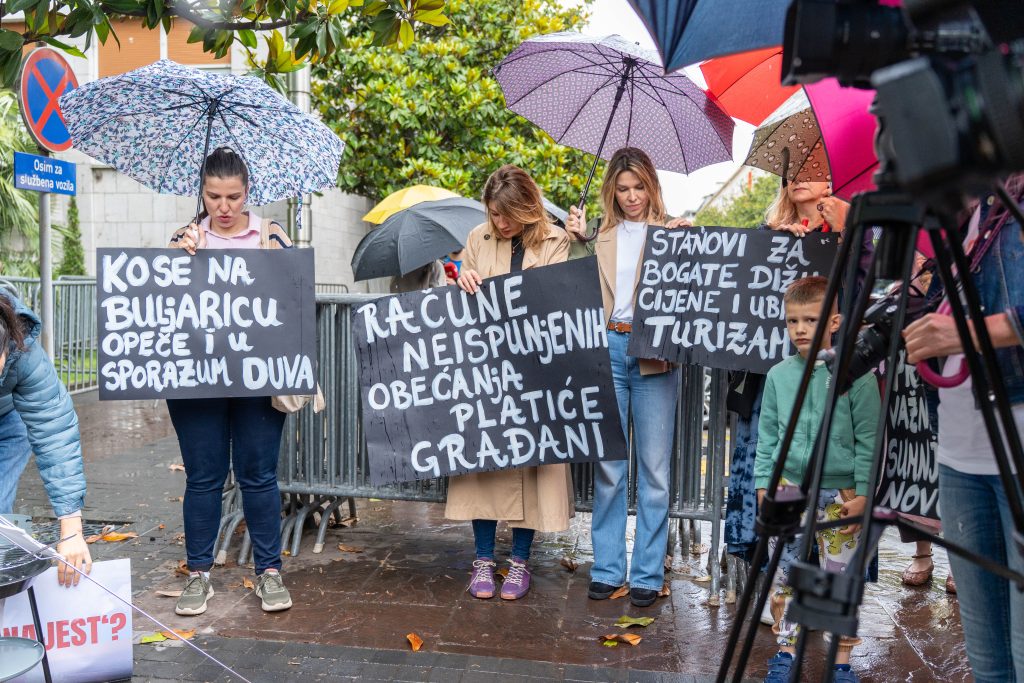 Osim za
službena vozila
KO SE NA
BULJARICU
OPEČE I U
SPORAZUM DUVA
RAČUNE
NEISPUNJENIH
OBEĆANJA
PLATIĆE
GRAĐANI
STANOVI ZA
BOGATE DIŽU
CIJENE I
TURIZAM
NAJEST‘?